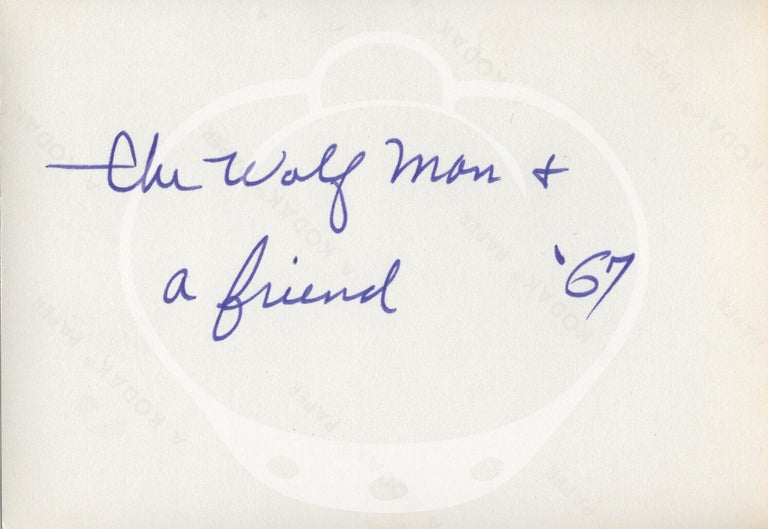 The Wolf Man &
a friend '67
A KODAK® PAPER
A KODAK® PAPER
A KODAK® PAPER
A KODAK® PAPER